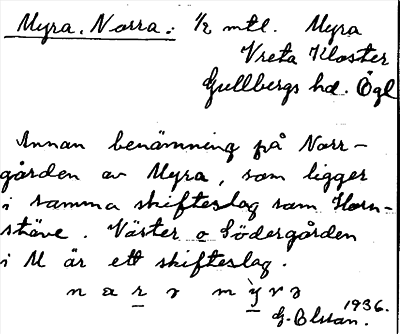 Myra, Norra: 1/2 mtl. Myra
Vreta Kloster
Gullbergs hd. Ögl
Annan benämning på Norr-
gården av Myra, som ligger
i samma skifteslag som Horn-
stäve. Väster o Södergården
i M är ett skifteslag.
n a r ə m y r ə
1936.
G. Olsson.